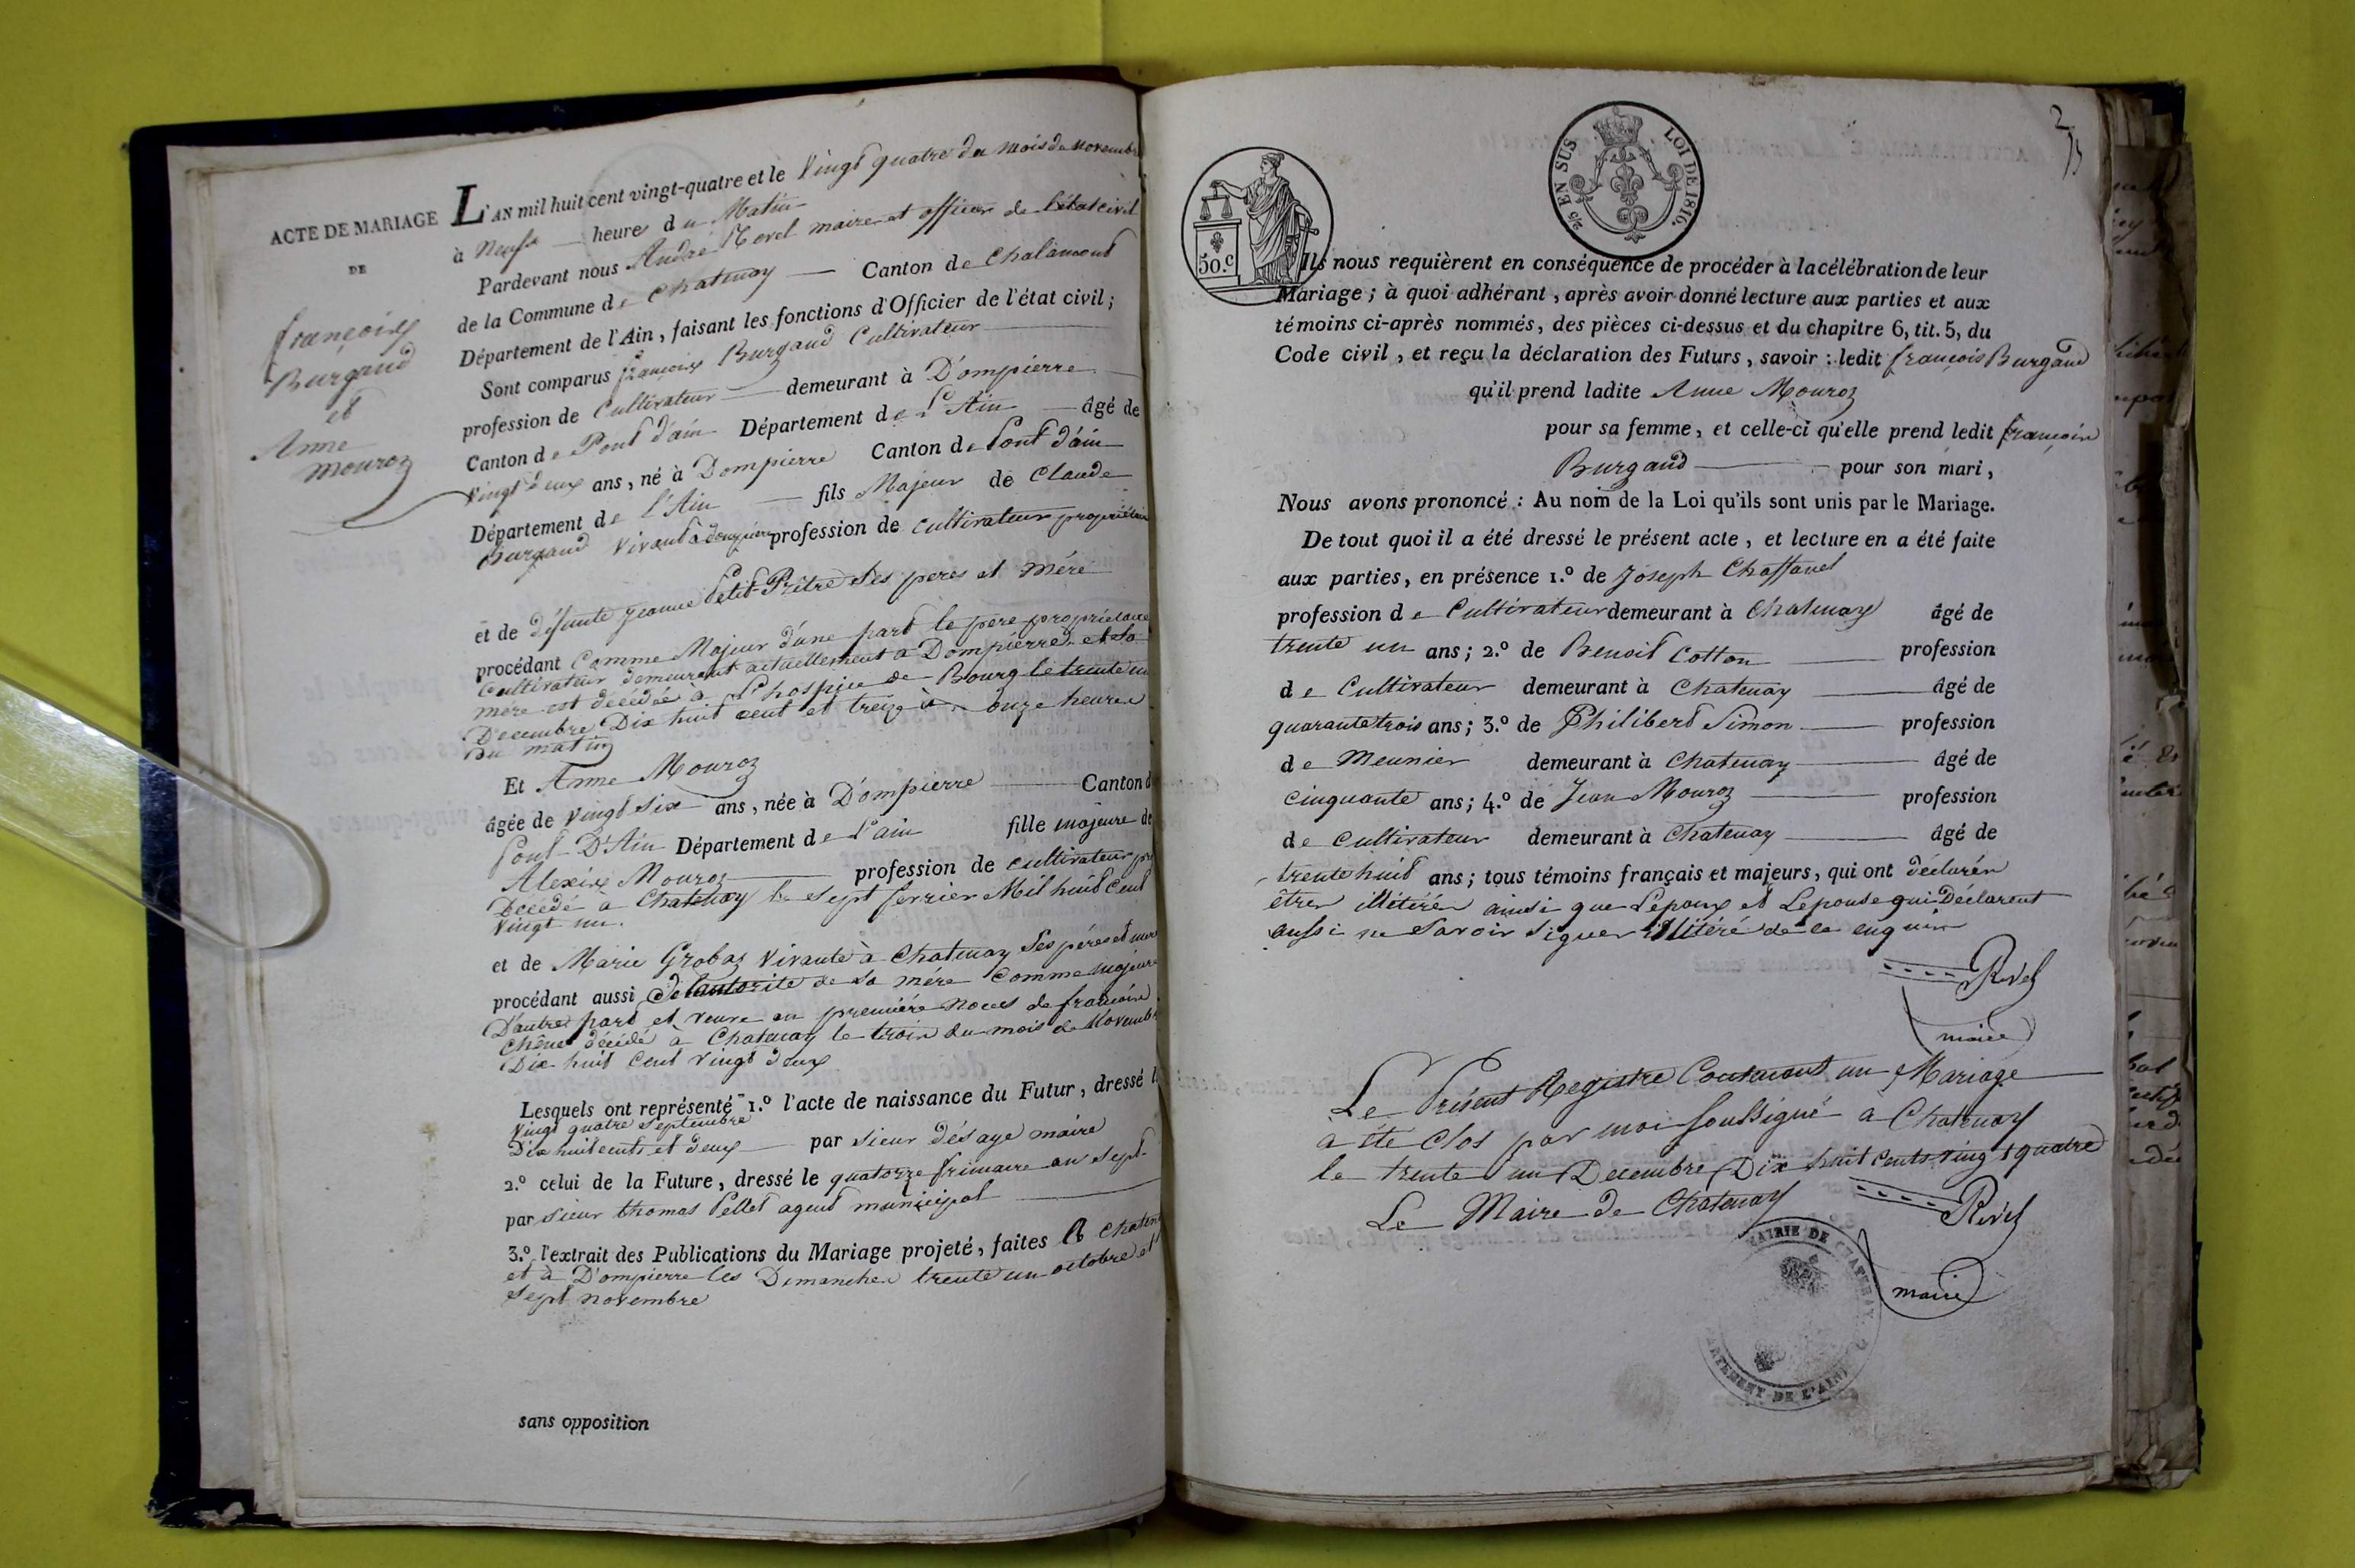 ACTE DE MARIAGE
DE
françois
Burgaud
et
Anne
mouroz
L'AN mil huit cent vingt-quatre et le Vingt quatre du mois de novembre
à Neuf heures du Matin
Pardevant nous André maire et officier de l'état civil
de la Commune de Chatenay Canton de Chalamont
Département de l'Ain, faisant les fonctions d'Officier de l'état civil;
Sont comparus françois Burgaud Cultivateur
profession de Cultivateur demeurant à D'ompierre
Canton de Pont d'ain Département de L'Ain âgé de
Vingt deux ans, né à Dompierre Canton de Pont d'ain
Département de l'Ain fils Majeur de Claude
Burgaud Vivant à dompierre profession de cultivateur propriétaire
et de défunte jeanne Petit-Prêtre ses peres et mére
procédant Comme Majeur d'une part le pere propriétaire
Cultivateur demeurant actuellement a Dompierre et sa
mere est décédée à L'hospice de Bourg le trente un
Decembre Dix huit cent et treize à onze heures
du matin
Et Anne Mouroz
âgée de vingt six ans, née à D'ompierre Canton d
Pont-D'Ain Département de l'ain fille majeure de
Alexix Mouroz profession de cultivateur
Decédé a Chatenay le sept fevrier Mil huit Cent
Vingt un.
et de Marie Grobaz Vivante à Chatenay Ses péres et mere
procédant aussi de lautorite de sa mére Comme majeure
D'autre part et veuve en première noces de francois
Chêne décédé à Chatenay le trois du mois de Novembre
Dix huit Cent vingt deux
Lesquels ont représenté 1.º l'acte de naissance du Futur, dressé l
Vingt quatre Septembre
Dix huit cents et deux par sieur désaye maire
2.º celui de la Future, dressé le quatorze frimaire an sept.
par sieur thomas Pellet agent municipal
3.º l'extrait des Publications du Mariage projeté, faites A Chaten
et à D'ompierre les Dimanches trente un octobre et
Sept novembre
sans opposition
2/5 EN SUS
LOI DE 1816.
50.c
Ils nous requièrent en conséquence de procéder à la célébration de leur
Mariage; à quoi adhérant, après avoir donné lecture aux parties et aux
témoins ci-après nommés, des pièces ci-dessus et du chapitre 6, tit. 5, du
Code civil, et reçu la déclaration des Futurs, savoir: ledit françois Burgaud
qu'il prend ladite Anne Mouroz
pour sa femme, et celle-ci qu'elle prend ledit françois
Burgaud pour son mari,
Nous avons prononcé: Au nom de la Loi qu'ils sont unis par le Mariage.
De tout quoi il a été dressé le présent acte, et lecture en a été faite
aux parties, en présence 1.º de Joseph Chaffanel
profession de Cultivateur demeurant à Chatenay âgé de
trente un ans; 2.º de Benoit Cotton profession
de Cultivateur demeurant à Chatenay âgé de
quarante trois ans; 3.º de Philibert Simon profession
de Meunier demeurant à Chatenay âgé de
cinquante ans; 4.º de Jean Mouroz profession
de Cultivateur demeurant à Chatenay âgé de
trente huit ans; tous témoins français et majeurs, qui ont déclarés
êtres illétérés ainsi que L'epoux et L'epouse qui Déclarent
aussi ne Savoir Signer illitéré de ce enquis
Revel
maire
Le Présent Registre Contenant un Mariage
a été Clos par moi Soussigné à Chatenay
le trente un Decembre Dix huit Cents vingt quatre
Le Maire de Chatenay
Revel
maire
MAIRIE DE CHATENAY
DE L'AIN